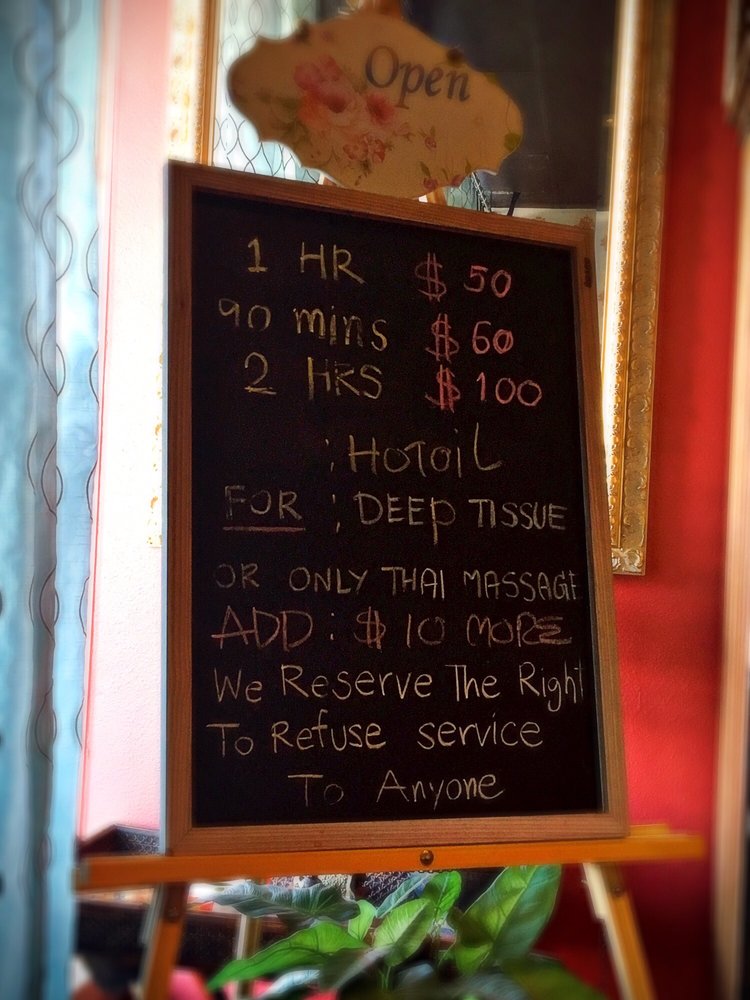 Open
1 HR $ 50
90 mins $ 60
2 HRS $ 100
: HOTOIL
FOR : DEEP TISSUE
OR ONLY THAI MASSAGE
ADD : $ 10 MORE
We Reserve The Right
To Refuse service
To Anyone